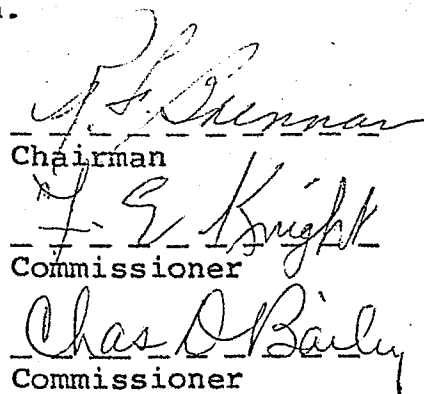 R F Brennan
Chairman
F E Knight
Commissioner
Chas D Bailey
Commissioner